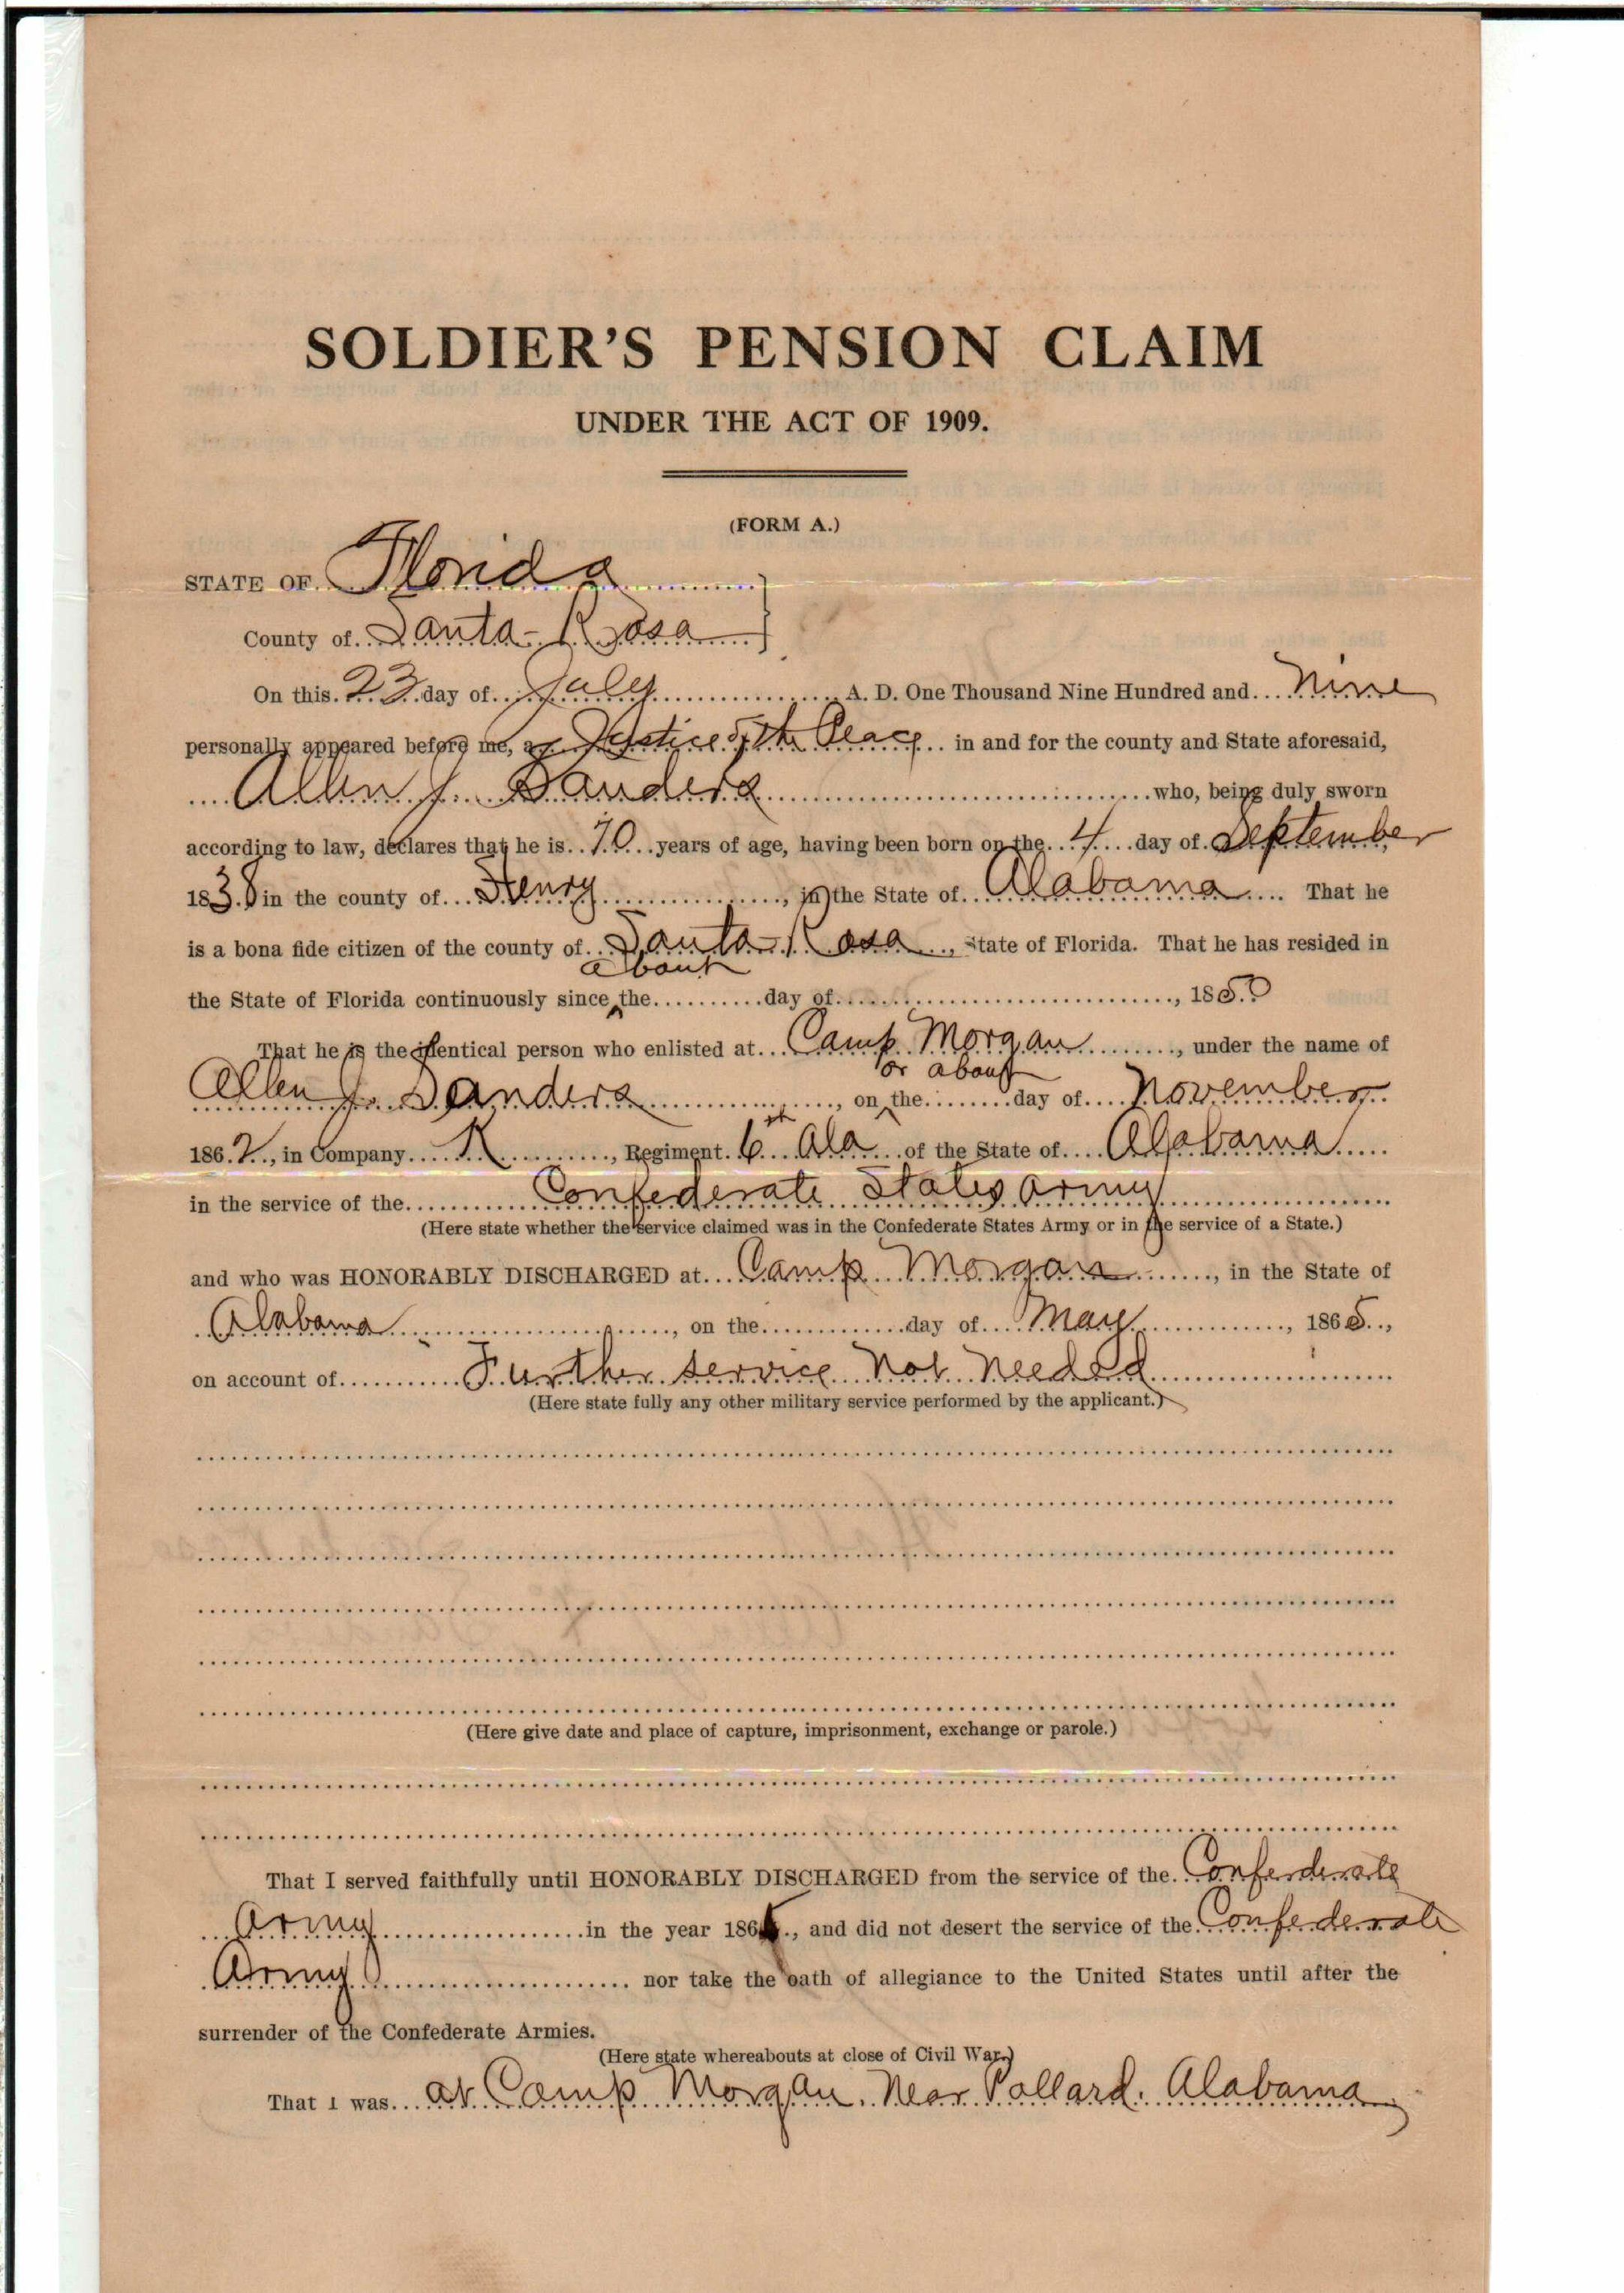 SOLDIER'S PENSION CLAIM
UNDER THE ACT OF 1909.
(FORM A.)
STATE OF Florida
County of Santa-Rosa
On this 23 day of July A. D. One Thousand Nine Hundred and Nine
personally appeared before me, a Justice of the Peace in and for the county and State aforesaid,
Allen J. Sanders who, being duly sworn
according to law, declares that he is 70 years of age, having been born on the 4 day of September
1838 in the county of Henry, in the State of Alabama That he
is a bona fide citizen of the county of Santa-Rosa, State of Florida. That he has resided in
about
the State of Florida continuously since ^ the day of , 1850
That he is the identical person who enlisted at Camp Morgan, under the name of
or about
Allen J. Sanders, on ^ the day of November
1862, in Company K, Regiment 6st Ala of the State of Alabama
in the service of the Confederate States Army
(Here state whether the service claimed was in the Confederate States Army or in the service of a State.)
and who was HONORABLY DISCHARGED at Camp Morgan, in the State of
Alabama, on the day of May, 1865,
on account of Further service not needed
(Here state fully any other military service performed by the applicant.)
(Here give date and place of capture, imprisonment, exchange or parole.)
That I served faithfully until HONORABLY DISCHARGED from the service of the Conferderate
Army in the year 1865, and did not desert the service of the Confederate
Army nor take the oath of allegiance to the United States until after the
surrender of the Confederate Armies.
(Here state whereabouts at close of Civil War.)
That I was at Camp Morgan. Near Pollard. Alabama